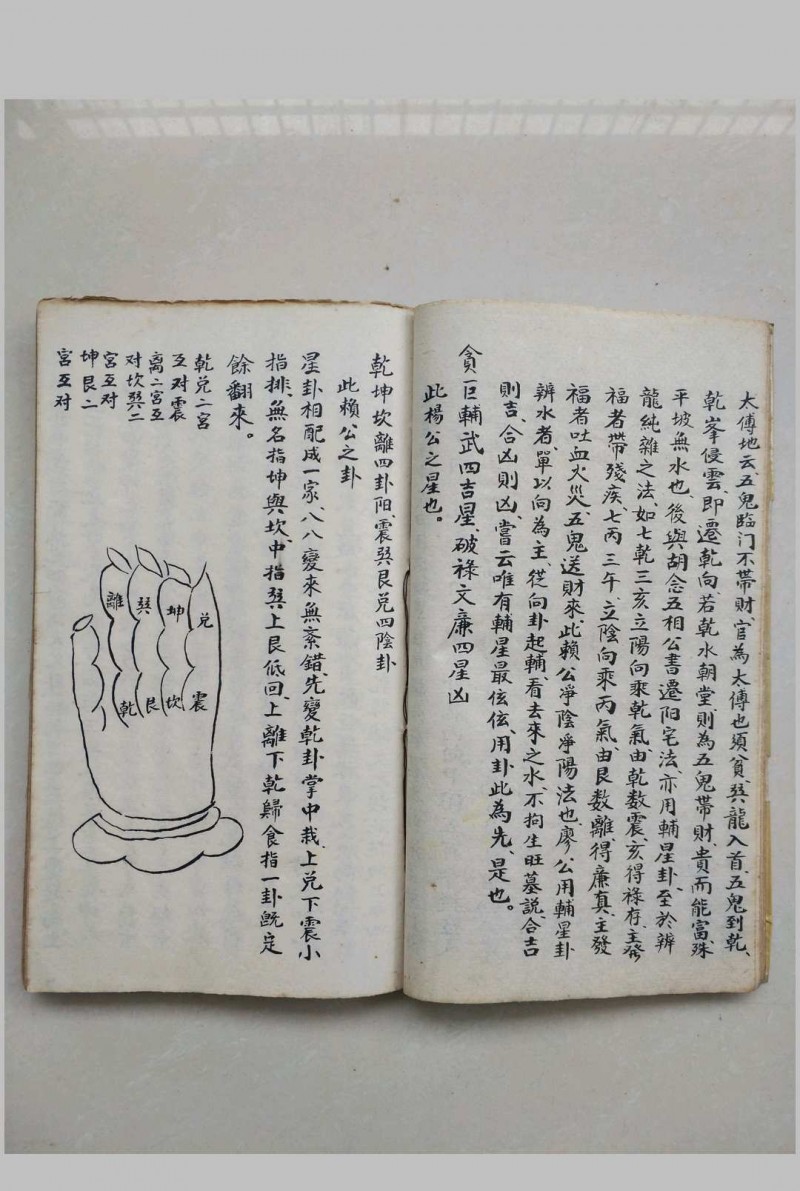 太傅地云、五鬼臨门不帶財、官為太傅也須貧、巽龍入首、五鬼到乾、
乾峯侵雲、即遷乾向、若乾水朝堂、則為五鬼帶財、貴而能富、殊
平坡無水也、後與胡念五相公書遷阳宅法、亦用輔星卦、至於辨
龍純雜之法、如七乾三亥立陽向乘乾氣、由乾数震、亥得祿存、主發
福者帶殘疾、七丙三午、立陰向乘丙氣、由艮数離、得廉真、主發
福者吐血火災、五鬼送財來、此賴公淨陰淨陽法也、廖公用輔星卦
辨水者、單以向為主、從向卦起輔、看去來之水、不拘生旺墓説、合吉
則吉、合凶則凶、嘗云唯有輔星最伭伭、用卦此為先、是也。
貪巨輔武四吉星、破祿文廉四星凶
此楊公之星也。
乾坤坎離四卦阳、震巽艮兑四陰卦
此賴公之卦
星卦相配成一家、八八變來無紊錯、先變乾卦掌中栽、上兑下震小
指排、無名指坤與坎、中指巽上艮低回、上離下乾歸食指一卦既定
餘翻來。
乾兑二宮
互对震
离二宮互
对坎巽二
宮互对
坤艮二
宮互对
離 巽 坤 兑
乾 艮 坎 震